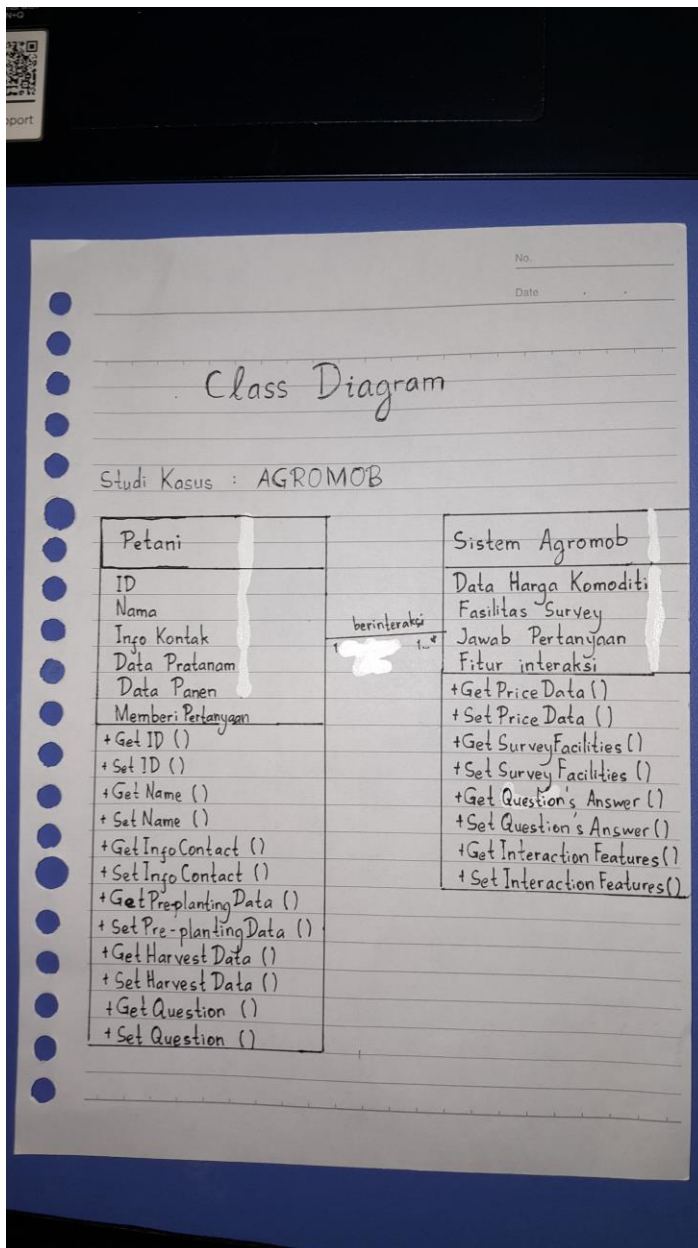 N-Q
pport
No.
Date
Class Diagram
Studi Kasus : AGROMOB
Petani
ID
Nama
Info Kontak
Data Pratanam
Data Panen
Memberi Pertanyaan
+Get ID ()
+Set ID ()
+Get Name ()
+Set Name ()
+Get Info Contact ()
+Set Info Contact ()
+Get Pre-planting Data ()
+Set Pre-planting Data ()
+Get Harvest Data ()
+Set Harvest Data ()
+Get Question ()
+Set Question ()
berinteraksi
1 1..*
Sistem Agromob
Data Harga Komoditi
Fasilitas Survey
Jawab Pertanyaan
Fitur interaksi
+Get Price Data ()
+Set Price Data ()
+Get Survey Facilities ()
+Set Survey Facilities ()
+Get Question's Answer ()
+Set Question's Answer ()
+Get Interaction Features ()
+Set Interaction Features ()